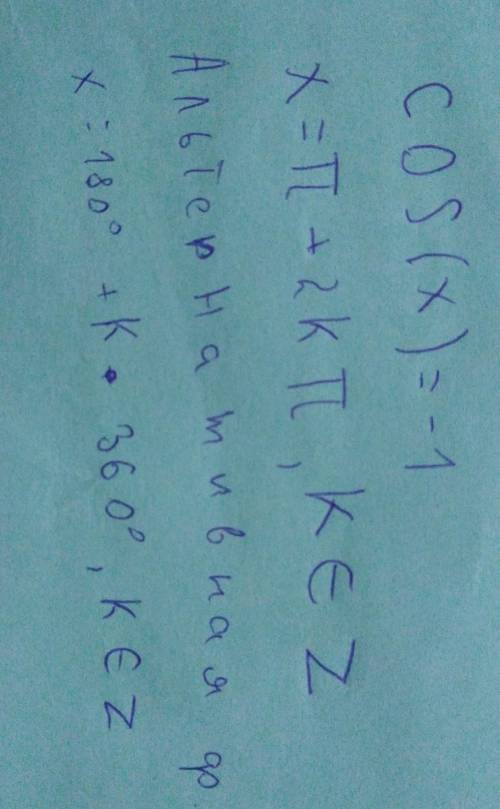 cos(x)=-1
x=π+2kπ, k∈Z
Альтернативная ф
x=180°+k·360°, k∈Z